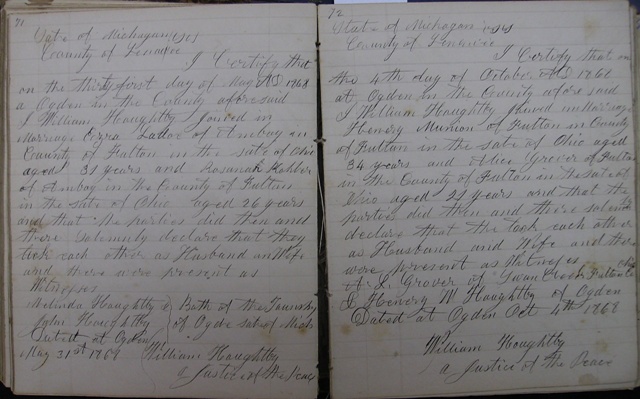 71
State of Michagan } SS
County of Lenawee
I Certify that
on the thirty first day of May AD 1868
a Ogden in the County afore said
I William Houghtby joined in
Marriage Ezra Lador of Amboy in
County of Fulton in the sate of Ohio
aged 31 years and Rosanah Kohler
of Amboy in the County of Fulton
in the sate of Ohio aged 26 years
and that the parties did then and
there Solemnly declare that they
took each other as Husband an Wife
and there were present as
Witnesses
Melinda Houghtby } Both of the Township
John Houghtby } of Ogde sate of Mich
Dated at Ogden
May 31st 1868 William Houghtby
a Justice of the Peace
72
State of Michagan } SS
County of Lenawee
I Certify that on
the 4th day of October AD 1868
at Ogden in the County afore said
I William Houghtby joined in Marriage
Henery Munion of Fulton in County
of Fulton in the sate of Ohio aged
34 years and Alice Grover of Fulton
in the County of Fulton in the sate of
Ohio aged 21 years and that the
parties did then and there solemnly
declare that the took each other
as Husband and Wife and there
were present as Witneses
L Grover of Swan Creek Fulton Co Ohio
& Henery W Houghtby of Ogden
Dated at Ogden Oct 4th 1868
William Houghtby
a Justice of the Peace